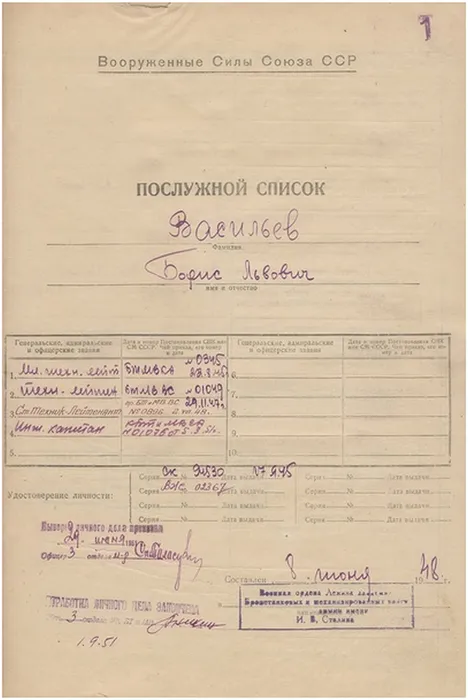 1
Вооруженные Силы Союза ССР
ПОСЛУЖНОЙ СПИСОК
Васильев
Фамилия
Борис Львович
имя и отчество
Генеральские, адмиральские и офицерские звания
Дата и номер Постановления СНК или СМ СССР. Чей приказ, его номер и дата
Генеральские, адмиральские и офицерские звания
Дата и номер Постановления СНК или СМ СССР. Чей приказ, его номер и дата
1. Мл. техн. лейт БТМВСА №0345
2. Техн. лейтен БТМВ ВС №01049 29.11.47
3. Ст. Техник-Лейтенант пр. БТ и МВ ВС №0856
4. Инж. капитан
5.
6.
7.
8.
9.
10.
Удостоверение личности:
Серия СК № 94530 Дата выдачи
Серия № 02367 Дата выдачи
Серия № Дата выдачи
Серия № Дата выдачи
Серия № Дата выдачи
Серия № Дата выдачи
личного дела
29 июня
Офицер 3 отдела
Составлен 8 июня 1948 г.
Военная ордена Ленина академия
Бронетанковых и механизированных войск
армии имени
И. В. Сталина
ОБРАБОТКА ЛИЧНОГО ДЕЛА ЗАКОНЧЕНА
3
1.9.51